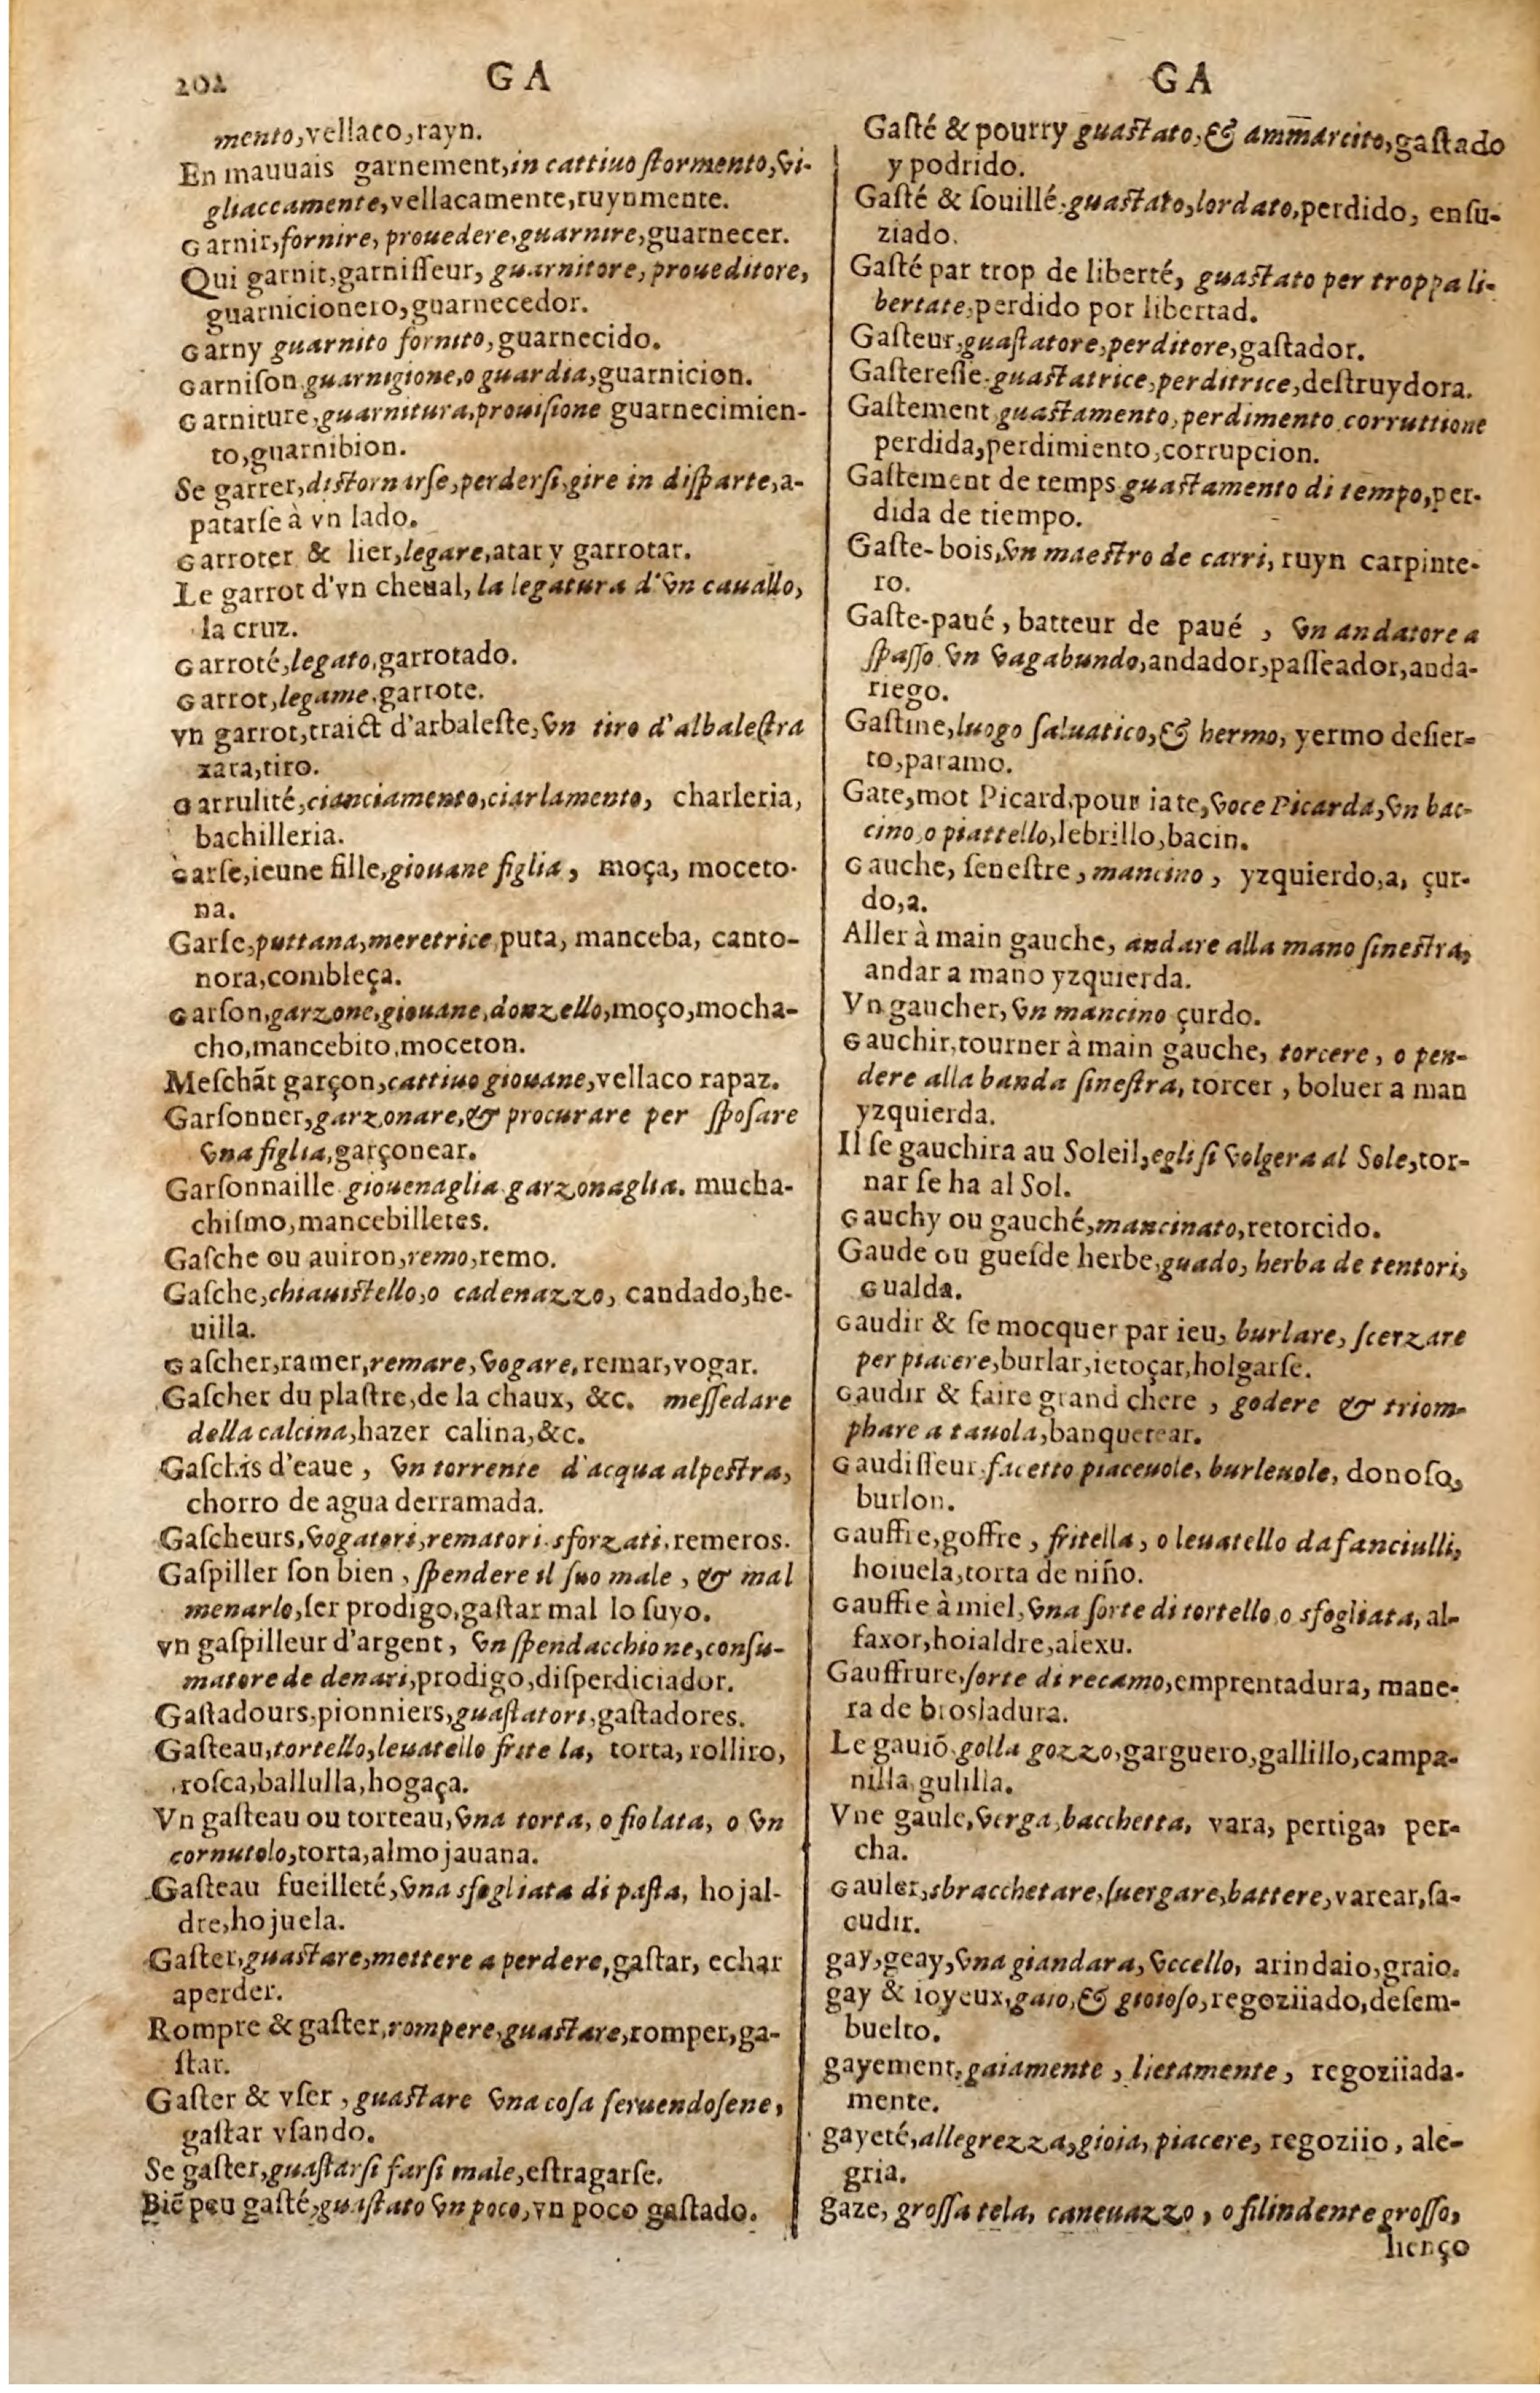 202
GA
mento, vellaco, rayn.
En mauuais garnement, in cattiuo ſtormento, vi-
gliaccamente, vellacamente, ruynmente.
Garnir, fornire, prouedere, guarnire, guarnecer.
Qui garnit, garniſſeur, guarnitore, proueditore,
guarnicionero, guarnecedor.
Garny guarnito fornito, guarnecido.
Garniſon guarnigione, o guardia, guarnicion.
Garniture, guarnitura, prouiſione guarnecimien-
to, guarnibion.
Se garrer, diſtornarſe, perderſi, gire in diſparte, a-
patarſe à vn lado.
Garroter & lier, legare, atar y garrotar.
Le garrot d'vn cheual, la legatura d'vn cauallo,
la cruz.
Garroté, legato, garrotado.
Garrot, legame, garrote.
vn garrot, traict d'arbaleſte, vn tiro d'albaleſtra
xara, tiro.
Garrulité, cianciamento, ciarlamento, charleria,
bachilleria.
Garſe, ieune fille, giouane figlia, moça, moceto-
na.
Garſe, puttana, meretrice puta, manceba, canto-
nora, combleça.
Garſon, garzone, giouane, donzello, moço, mocha-
cho, mancebito, moceton.
Meſchãt garçon, cattiuo giouane, vellaco rapaz.
Garſonner, garzonare, & procurare per ſpoſare
vna figlia, garçonear.
Garſonnaille giouenaglia garzonaglia. mucha-
chiſmo, mancebilletes.
Gaſche ou auiron, remo, remo.
Gaſche, chiauiſtello, o cadenazzo, candado, he-
uilla.
Gaſcher, ramer, remare, vogare, remar, vogar.
Gaſcher du plaſtre, de la chaux, &c. meſſedare
della calcina, hazer calina, &c.
Gaſchis d'eaue, vn torrente d'acqua alpeſtra,
chorro de agua derramada.
Gaſcheurs, vogatori, rematori sforzati, remeros.
Gaſpiller ſon bien, ſpendere il ſuo male, & mal
menarlo, ſer prodigo, gaſtar mal lo ſuyo.
vn gaſpilleur d'argent, vn ſpendacchione, conſu-
matore de denari, prodigo, diſperdiciador.
Gaſtadours, pionniers, guaſtatori, gaſtadores.
Gaſteau, tortello, leuatello frite la, torta, rolliro,
roſca, ballulla, hogaça.
Vn gaſteau ou torteau, vna torta, o fiolata, o vn
cornutolo, torta, almojauana.
Gaſteau fueilleté, vna sfogliata di paſta, hojal-
dre, hojuela.
Gaſter, guaſtare, mettere a perdere, gaſtar, echar
aperder.
Rompre & gaſter, rompere, guaſtare, romper, ga-
ſtar.
Gaſter & vſer, guaſtare vna coſa ſeruendoſene,
gaſtar vſando.
Se gaſter, guaſtarſi farſi male, eſtragarſe.
Biẽ peu gaſté, guaſtato vn poco, vn poco gaſtado.
GA
Gaſté & pourry guaſtato, & ammarcito, gaſtado
y podrido.
Gaſté & ſouillé, guaſtato, lordato, perdido, enſu-
ziado.
Gaſté par trop de liberté, guaſtato per troppa li-
bertate, perdido por libertad.
Gaſteur, guaſtatore, perditore, gaſtador.
Gaſtereſſe, guaſtatrice, perditrice, deſtruydora.
Gaſtement guaſtamento, perdimento, corruttione
perdida, perdimiento, corrupcion.
Gaſtement de temps guaſtamento di tempo, per-
dida de tiempo.
Gaſte-bois, vn maeſtro de carri, ruyn carpinte-
ro.
Gaſte-paué, batteur de paué, vn andatore a
ſpaſſo vn vagabundo, andador, paſſeador, anda-
riego.
Gaſtine, luogo ſaluatico, & hermo, yermo deſier-
to, paramo.
Gate, mot Picard, pour iate, voce Picarda, vn bac-
cino, o piattello, lebrillo, bacin.
Gauche, ſeneſtre, mancino, yzquierdo, a, çur-
do, a.
Aller à main gauche, andare alla mano ſineſtra,
andar a mano yzquierda.
Vn gaucher, vn mancino çurdo.
Gauchir, tourner à main gauche, torcere, o pen-
dere alla banda ſineſtra, torcer, boluer a man
yzquierda.
Il ſe gauchira au Soleil, egli ſi volgera al Sole, tor-
nar ſe ha al Sol.
Gauchy ou gauché, mancinato, retorcido.
Gaude ou gueſde herbe, guado, herba de tentori,
Gualda.
Gaudir & ſe mocquer par ieu, burlare, ſcerzare
per piacere, burlar, ietoçar, holgarſe.
Gaudir & faire grand chere, godere & triom-
phare a tauola, banquetear.
Gaudiſſeur, facetto piaceuole, burleuole, donoſo,
burlon.
Gauffre, goffre, fritella, o leuatello da fanciulli,
hoiuela, torta de niño.
Gauffre à miel, vna ſorte di tortello o sfogliata, al-
faxor, hoialdre, alexu.
Gauffrure, ſorte di recamo, emprentadura, mane-
ra de broſladura.
Le gauiõ, golla gozzo, garguero, gallillo, campa-
nilla, gulilla.
Vne gaule, verga, bacchetta, vara, pertiga, per-
cha.
Gauler, sbracchetare, ſuergare, battere, varear, ſa-
cudir.
gay, geay, vna giandara, vccello, arindaio, graio.
gay & ioyeux, gaio, & gioioſo, regoziiado, deſem-
buelto.
gayement, gaiamente, lietamente, regoziiada-
mente.
gayeté, allegrezza, gioia, piacere, regoziio, ale-
gria.
gaze, groſſa tela, caneuazzo, o filindente groſſo,
lienço